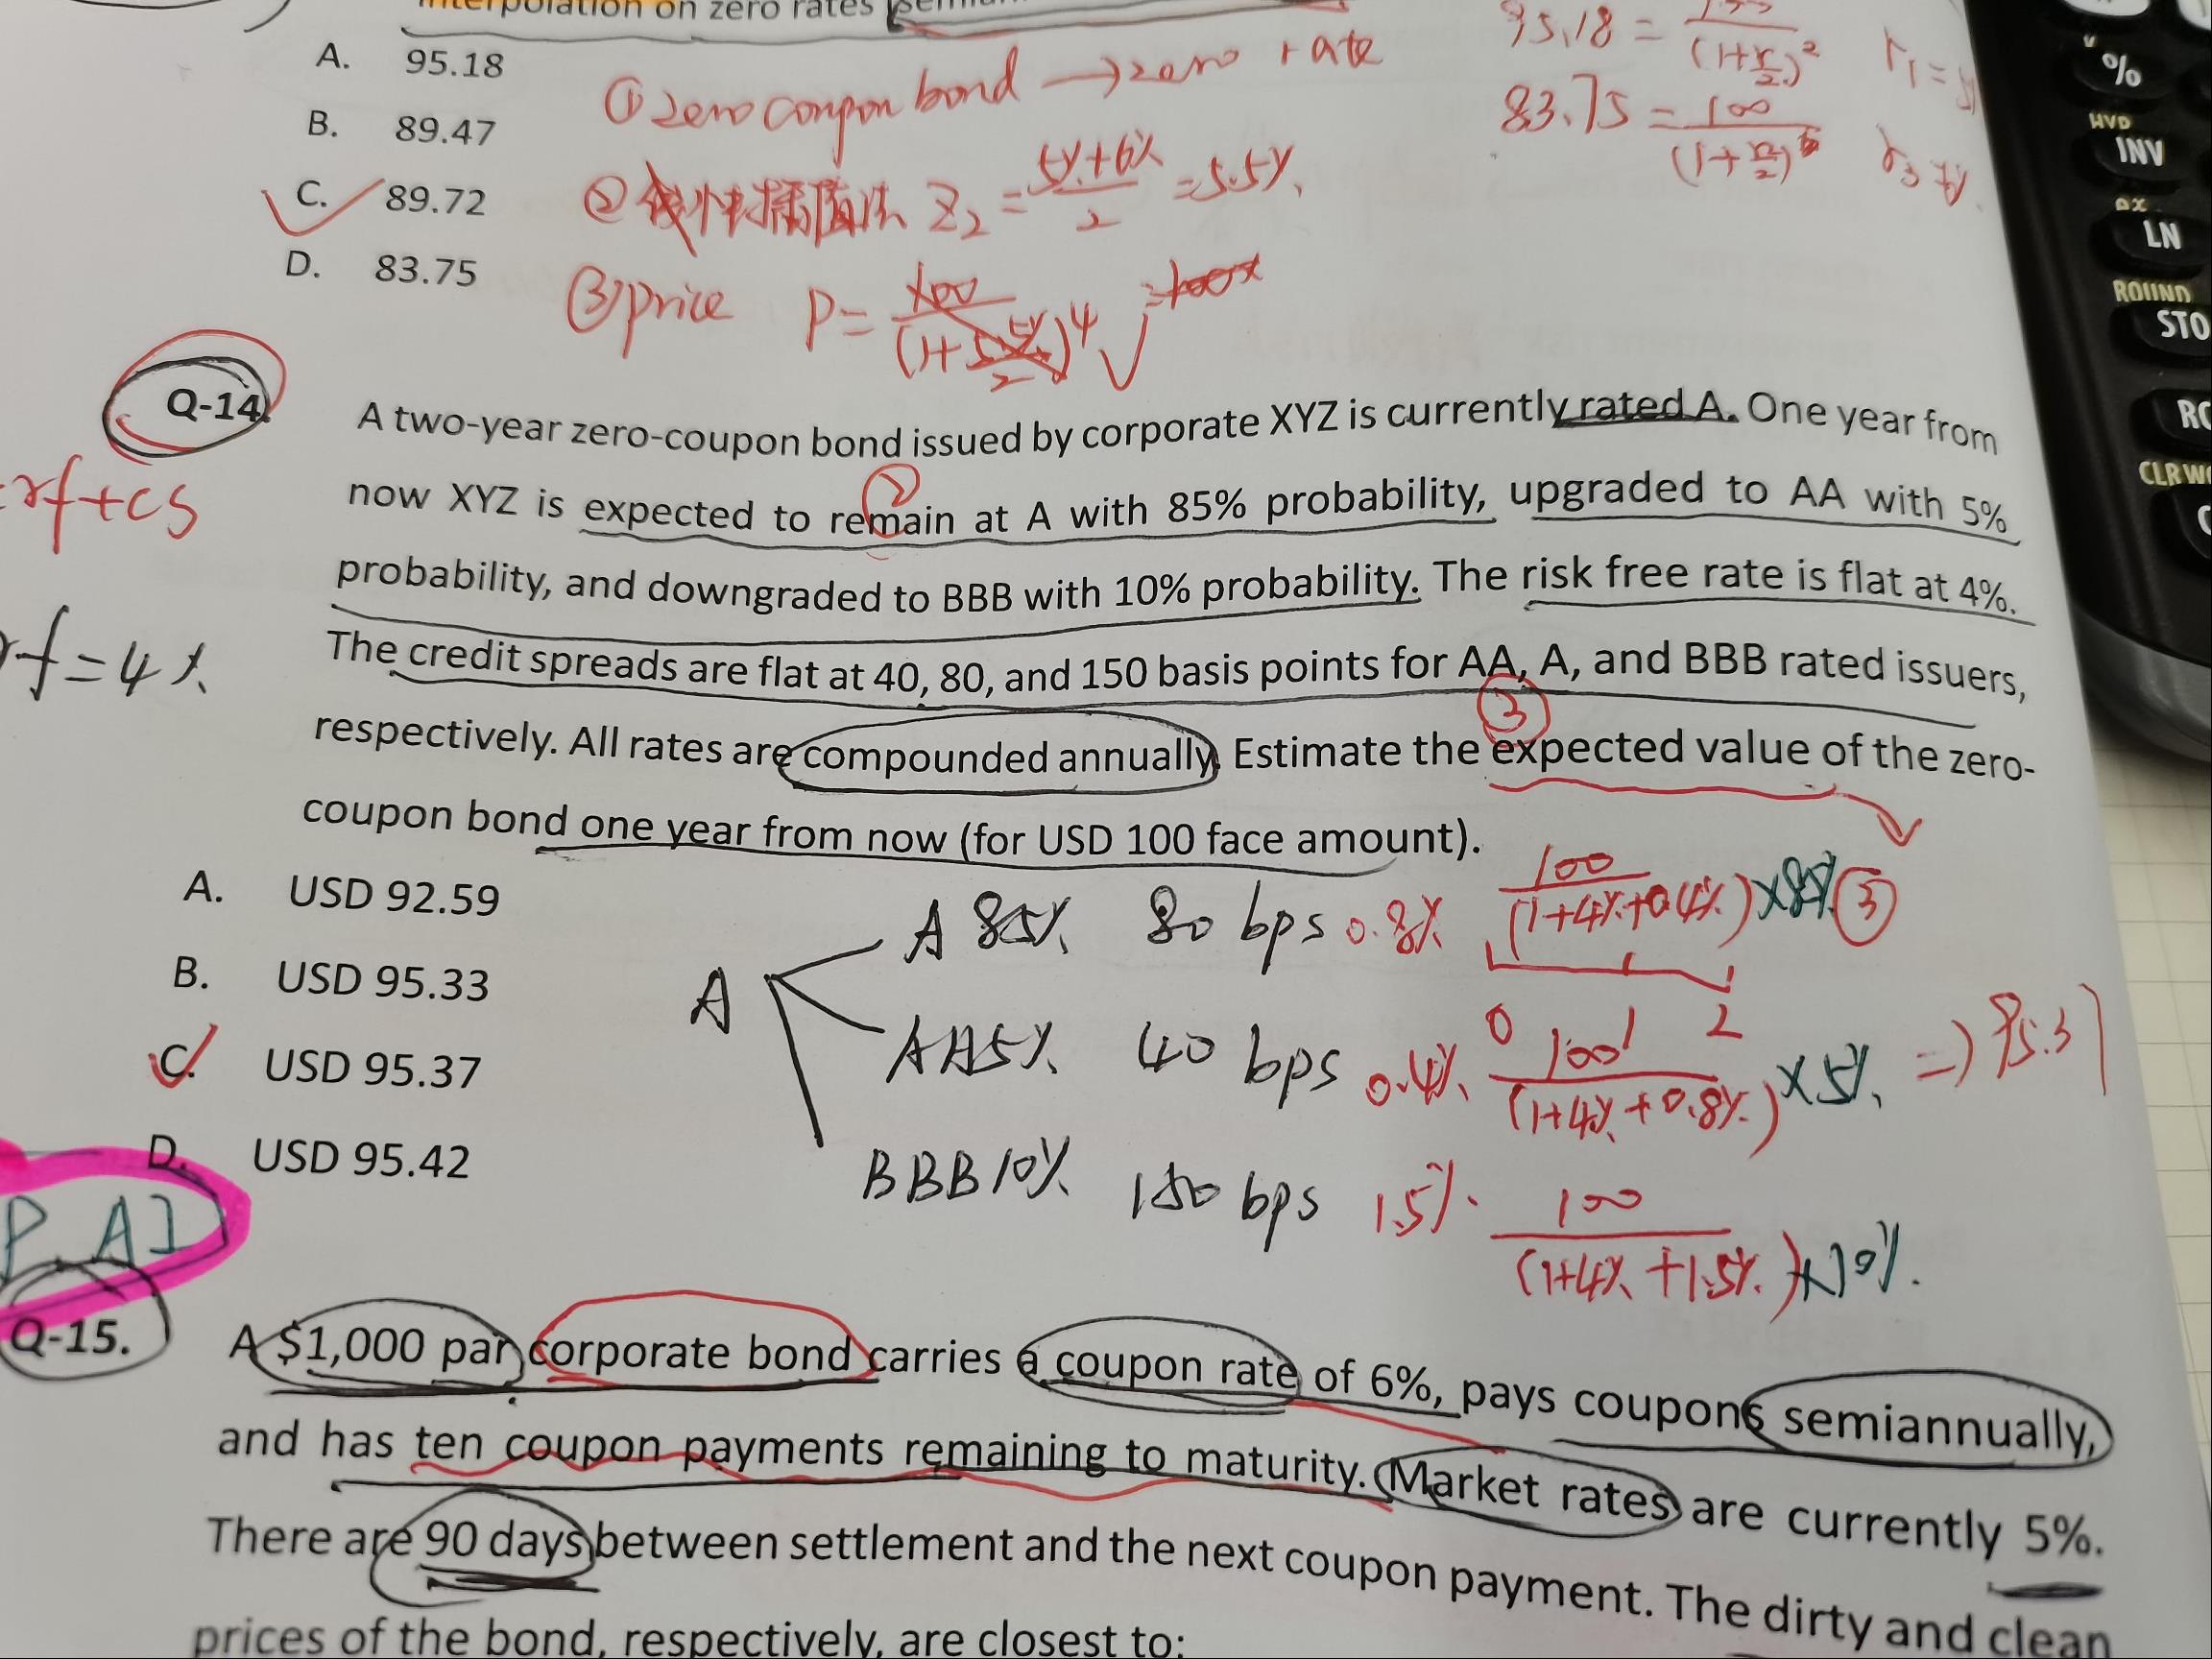 interpolation on zero rates
A. 95.18
B. 89.47
C. 89.72
D. 83.75
① zero coupon bond → zero rate
② 线性插值法 Z₂ = (5%+6%)/2 = 5.5%
③ price P = 100/(1+5.5%/2)⁴
95.18 = /(1+r/2)²
83.75 = 100/
Q-14. A two-year zero-coupon bond issued by corporate XYZ is currently rated A. One year from
now XYZ is expected to remain at A with 85% probability, upgraded to AA with 5%
probability, and downgraded to BBB with 10% probability. The risk free rate is flat at 4%.
The credit spreads are flat at 40, 80, and 150 basis points for AA, A, and BBB rated issuers,
respectively. All rates are compounded annually. Estimate the expected value of the zero-
coupon bond one year from now (for USD 100 face amount).
②
③
rf+cs
rf=4%
A. USD 92.59
B. USD 95.33
C. USD 95.37
D. USD 95.42
A
A 85% 80 bps 0.8% 100/(1+4%+0.4%) ×85% ③
0 1 2
AA5% 40 bps 0.4% 100/(1+4%+0.8%) ×5% => 95.37
BBB10% 150 bps 1.5% 100/(1+4%+1.5%) ×10%
P AI
Q-15. A $1,000 par corporate bond carries a coupon rate of 6%, pays coupons semiannually,
and has ten coupon payments remaining to maturity. Market rates are currently 5%.
There are 90 days between settlement and the next coupon payment. The dirty and clean
prices of the bond, respectively, are closest to:
%
HVD
INV
LN
ROUND
STO
CLR